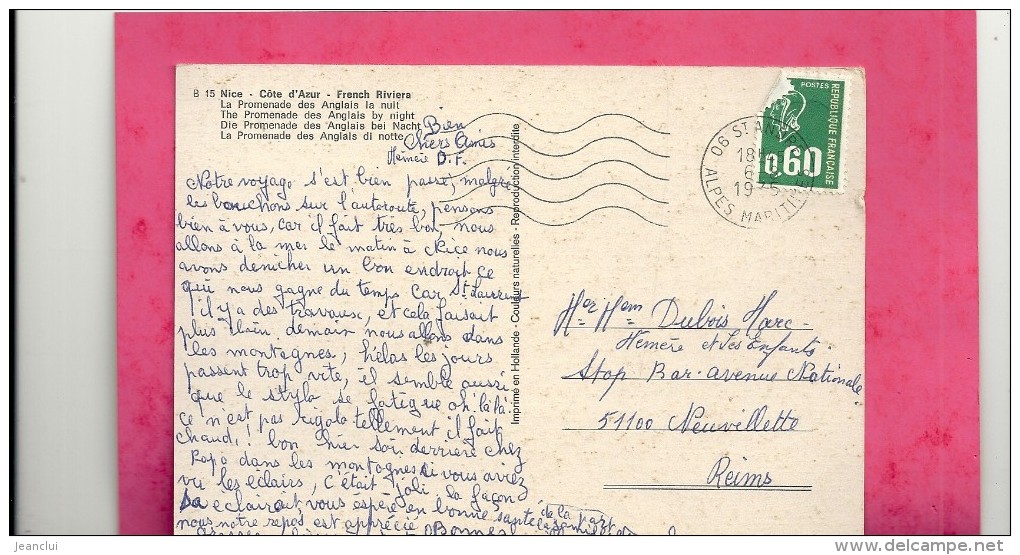 B 15 Nice - Côte d'Azur - French Riviera
La Promenade des Anglais la nuit
The Promenade des Anglais by night
Die Promenade des Anglais bei Nacht
La Promenade des Anglais di notte
Bien
Chers Amis
Hémère D.F.
Notre voyage s'est bien passé, malgré
les bouchons sur l'autoroute, pensons
bien à vous, car il fait très bon, nous
allons à la mer le matin à Nice nous
avons dénicher un bon endroit ce
qui nous gagne du temps car St Laurent
il y a des travaux, et cela faisait
plus loin demain nous allons dans
les montagnes, hélas les jours
passent trop vite, il semble aussi
que le stylo se fatigue oh! là là
ce n'est pas rigolo tellement il fait
chaud! bon hier soir derrière chez
Papo dans les montagnes si vous aviez
vu les éclairs, c'était joli, la façon
éclairait, vous espère en bonne santé
nous notre repos est apprécié Bonnes
de la part
Imprimé en Hollande - Couleurs naturelles - Reproduction interdite
POSTES
REPUBLIQUE FRANÇAISE
0,60
06 ST AN
18H
6
1975
ALPES MARITIMES
Mer Mem Dubois Marc -
Hémère et Les Enfants
Stop Bar - avenue Nationale
51100 Neuvillette
Reims
jeanclui
delcampe.net